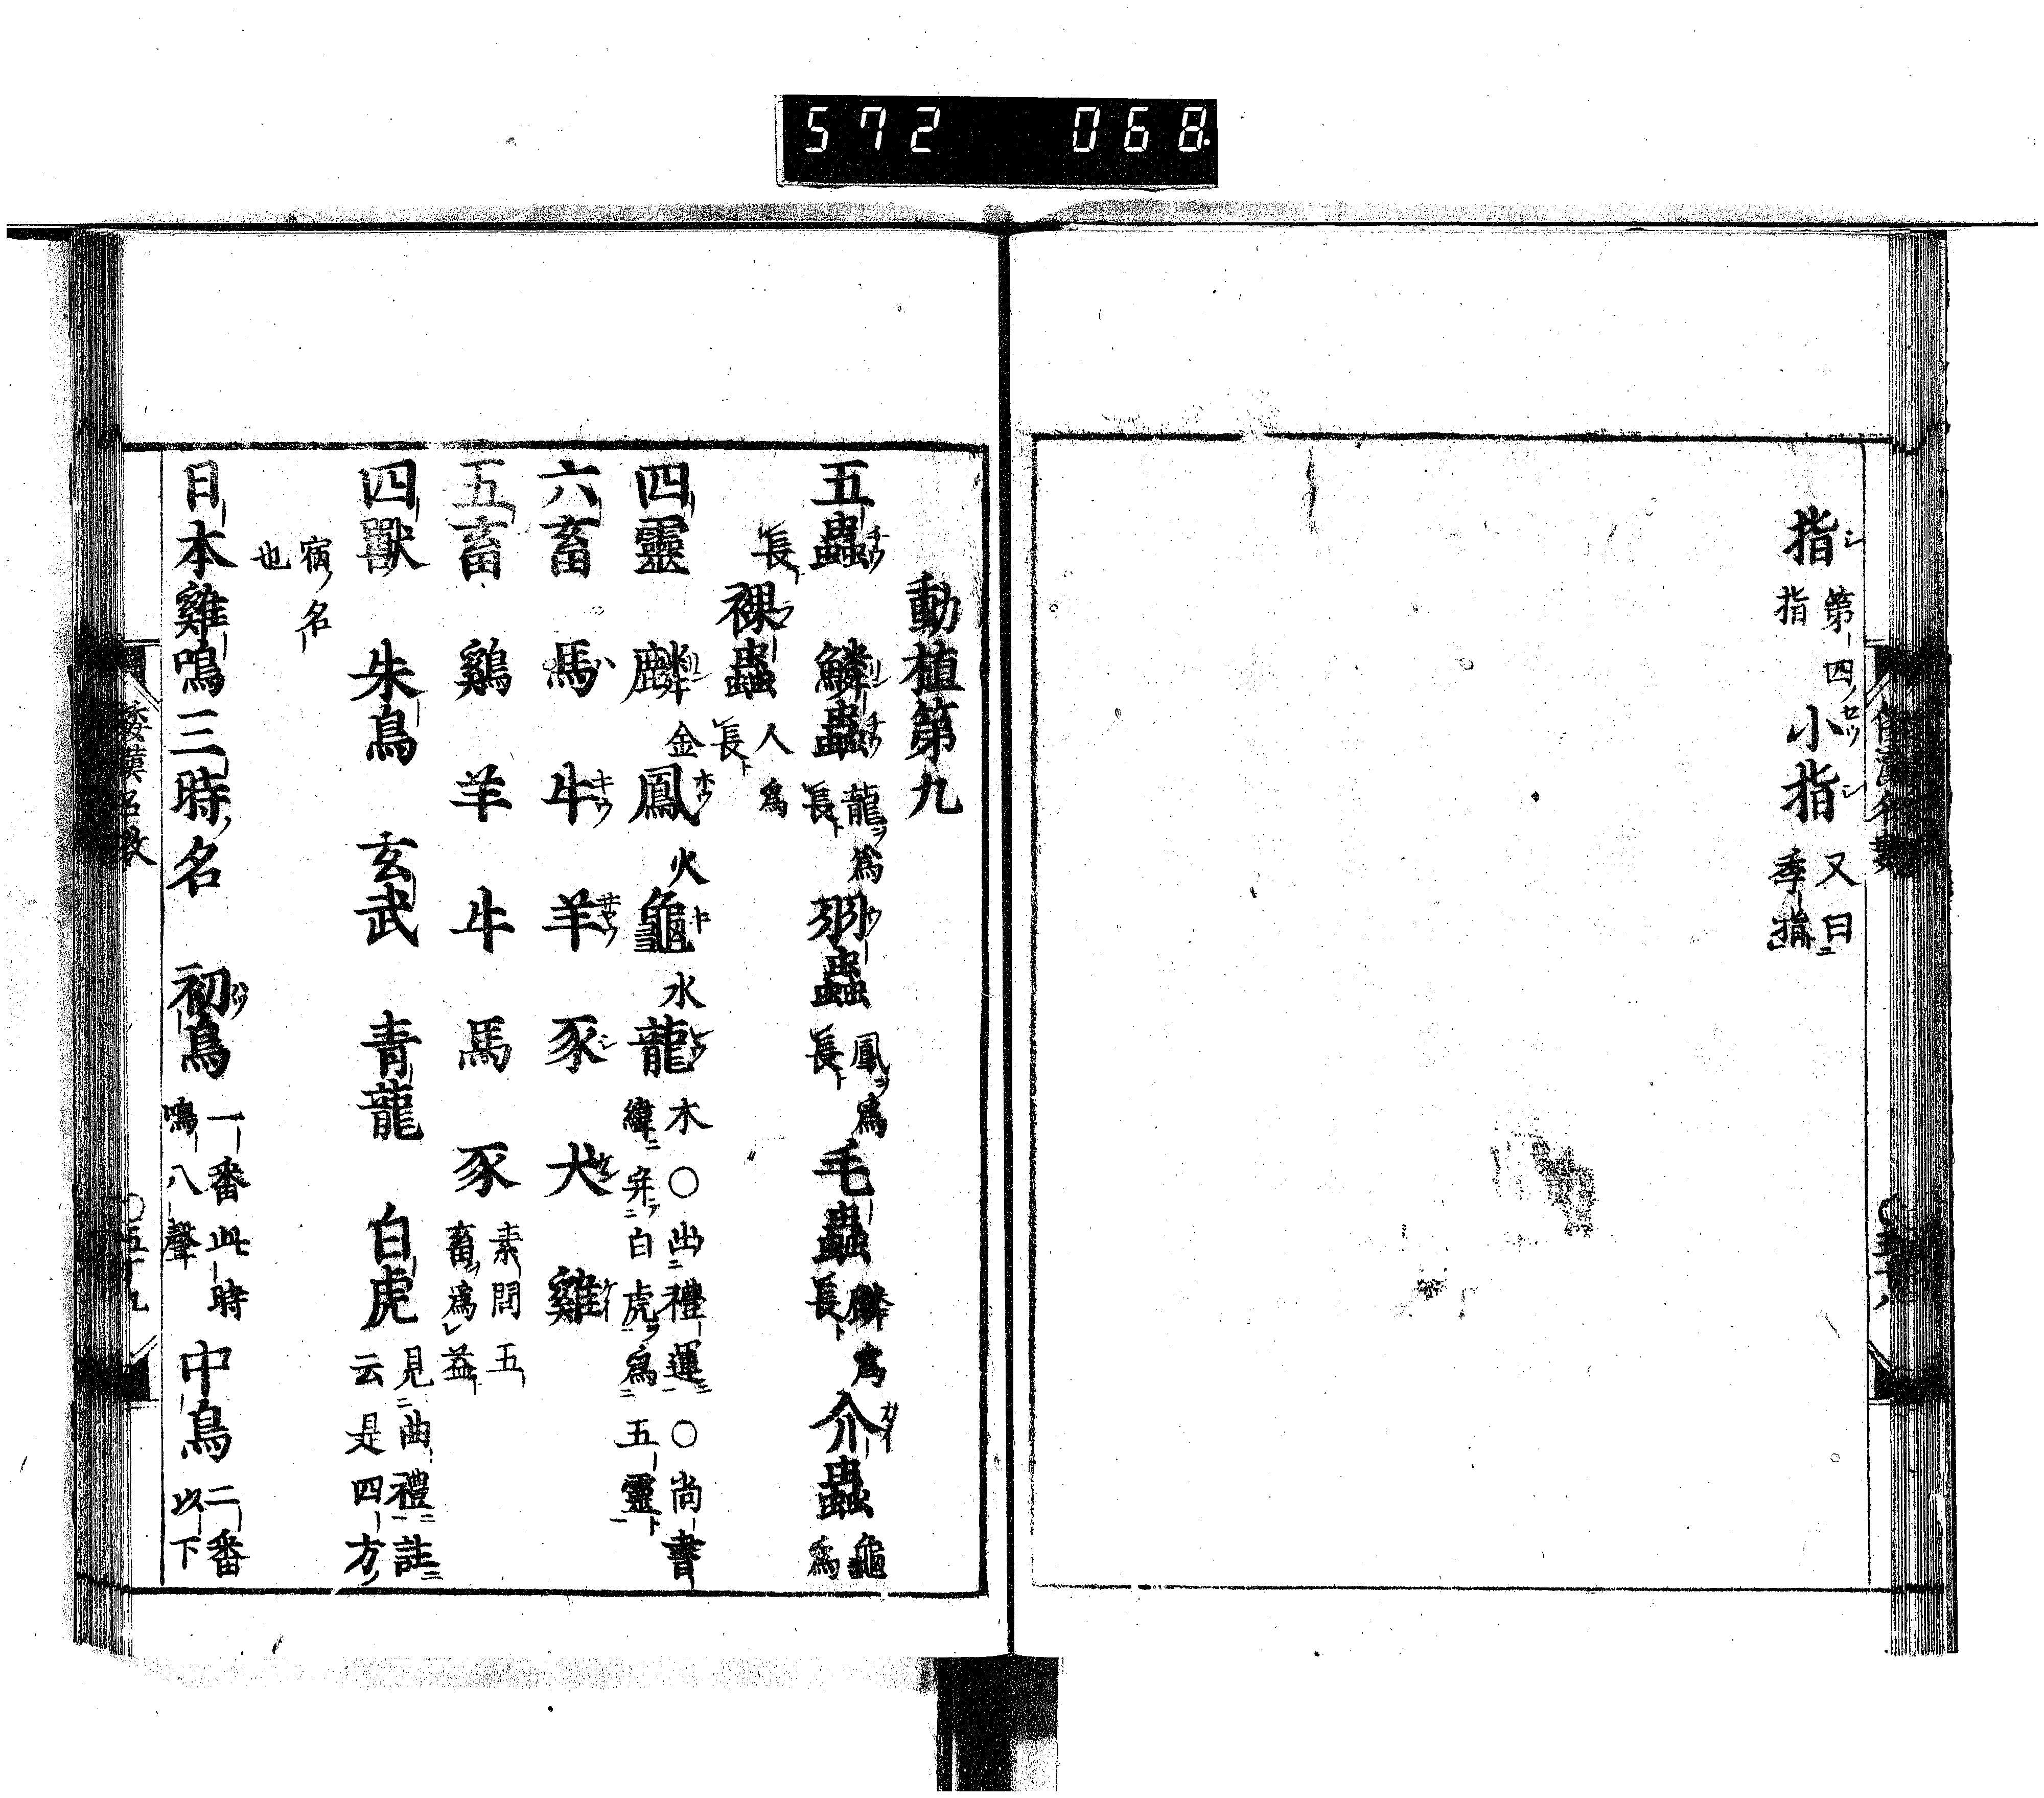 572 068
指 第四指 小指 又曰季指
動植第九
五蟲 鱗蟲 龍爲長 羽蟲 鳳爲長 毛蟲 麟爲長 介蟲 龜爲
長 裸蟲 人爲長
四靈 麟 金 鳳 火 龜 水 龍 木○出禮運○尚書緯ニ并白虎爲五靈
六畜 馬 牛 羊 豕 犬 雞
五畜 鷄 羊 牛 馬 豕 素問五畜爲益
四獸 朱鳥 玄武 青龍 白虎 見曲禮註云是四方
宿名也
日本雞鳴三時名 初鳥 一番此時鳴八聲 中鳥 二番以下
倭漢名数